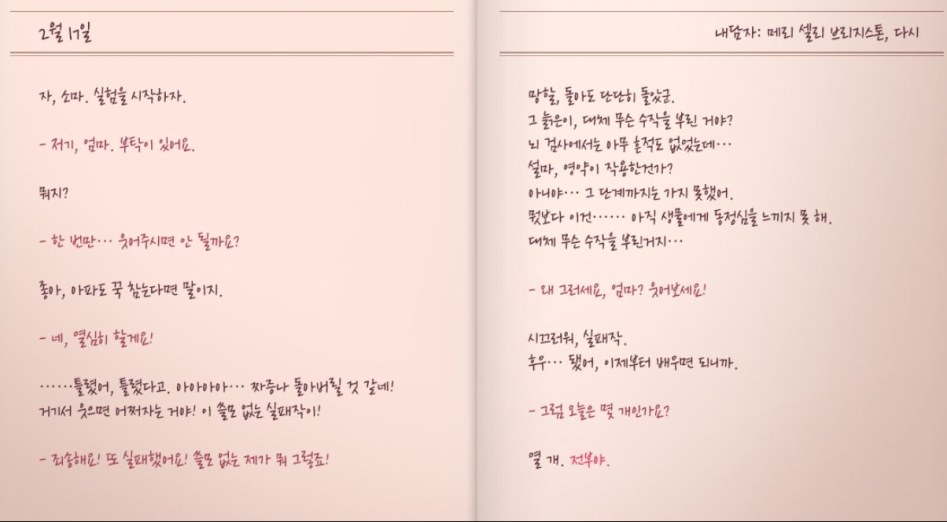 2월 17일
자, 소마. 실험을 시작하자.
- 저기, 엄마. 부탁이 있어요.
뭐지?
- 한 번만… 웃어주시면 안 될까요?
좋아, 아파도 꾹 참는다면 말이지.
- 네, 열심히 할게요!
……틀렸어, 틀렸다고. 아아아아… 짜증나 돌아버릴 것 같네!
거기서 웃으면 어쩌자는 거야! 이 쓸모 없는 실패작이!
- 죄송해요! 또 실패했어요! 쓸모 없는 제가 뭐 그렇죠!
내담자: 메리 셸리 브리지스톤, 다시
망할, 돌아도 단단히 돌았군.
그 늙은이, 대체 무슨 수작을 부린 거야?
뇌 검사에서는 아무 흔적도 없었는데…
설마, 영약이 작용한건가?
아니야… 그 단계까지는 가지 못했어.
뭣보다 이건…… 아직 생물에게 동정심을 느끼지 못 해.
대체 무슨 수작을 부린거지…
- 왜 그러세요, 엄마? 웃어보세요!
시끄러워, 실패작.
후우… 됐어, 이제부터 배우면 되니까.
- 그럼 오늘은 몇 개인가요?
열 개. 전부야.